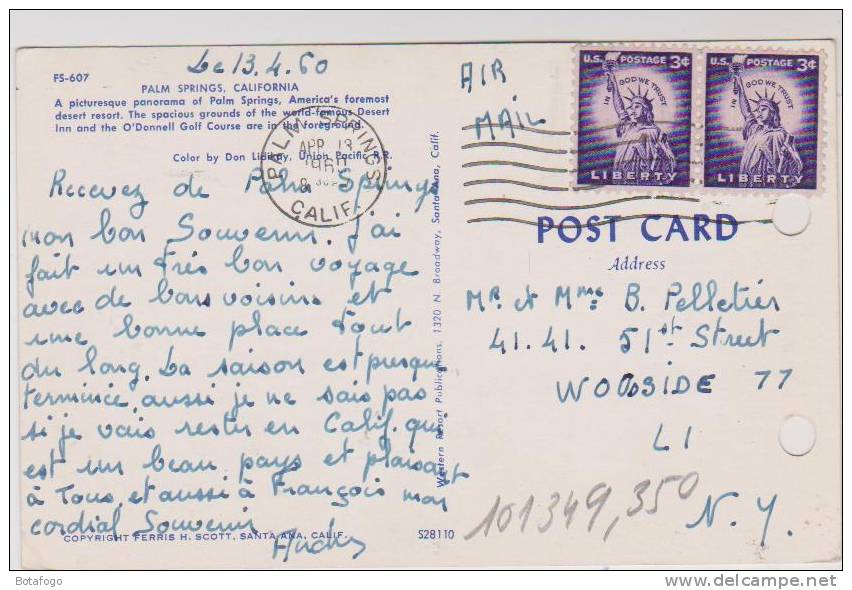 Le 13.4.60
FS-607
PALM SPRINGS, CALIFORNIA
A picturesque panorama of Palm Springs, America's foremost
desert resort. The spacious grounds of the world-famous Desert
Inn and the O'Donnell Golf Course are in the foreground.
Color by Don Union Pacific R.R.
PALM SPRINGS
APR 13
1960
CALIF.
Recevez de Palm Springs
mon bon Souvenir. J'ai
fait un très bon voyage
avec de bons voisins et
une bonne place tout
du long. La saison est presque
terminée, aussi je ne sais pas
si je vais rester en Calif. qui
est un beau pays et plaisant
à Tous, et aussi à François mon
cordial Souvenir
COPYRIGHT FERRIS H. SCOTT, SANTA ANA, CALIF.
S28110
Western Resort Publications, 1320 N. Broadway, Santa Ana, Calif.
AIR
MAIL
U.S. POSTAGE 3¢
IN GOD WE TRUST
LIBERTY
U.S. POSTAGE 3¢
IN GOD WE TRUST
LIBERTY
POST CARD
Address
Mr. et Mme. B. Pelletier
41.41. 51st Street
WOODSIDE 77
LI
N.Y.
101349,350
Botafogo
delcampe.net